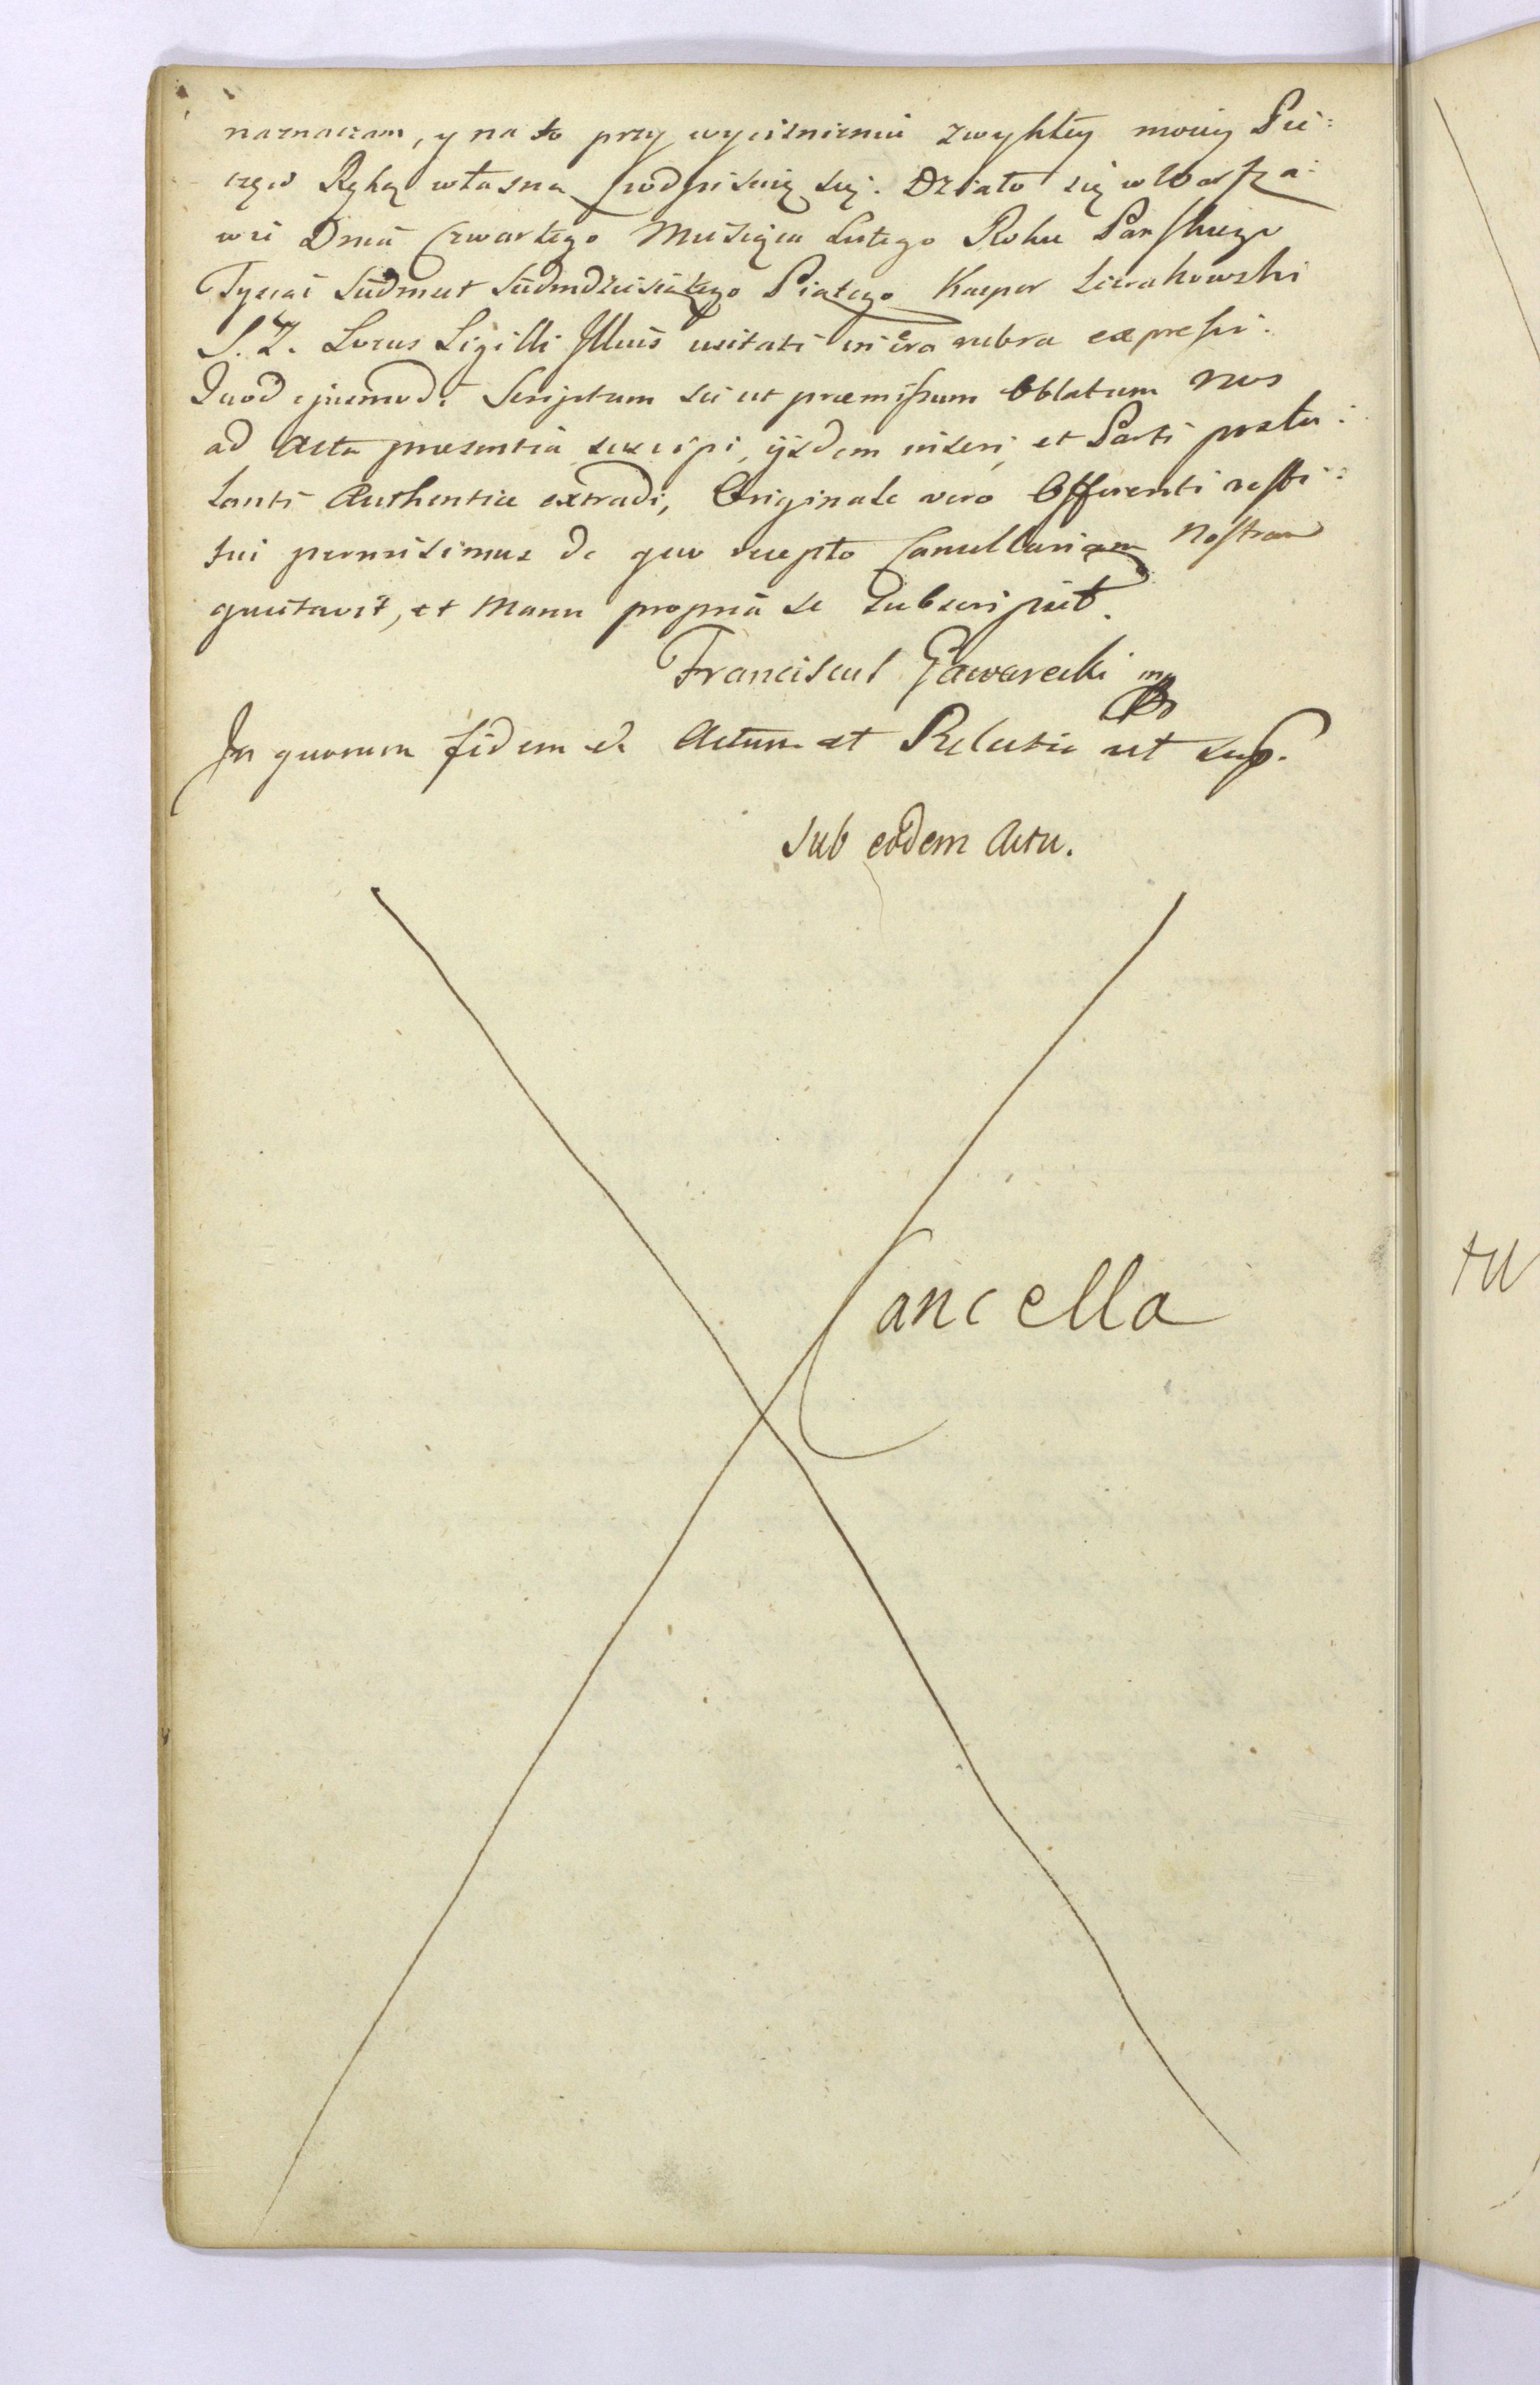 naznaczam, y na to przy wyciśnieniu zwykłey moiey Pie:
częci Ręką własną podpisuię się. Działo się w Warsza:
wie Dnia Czwartego Miesiąca Lutego Roku Pańskiego
Tysiąc Siedmset Siedmdziesiątego Piątego Kasper Sierakowski
L.S. Locus Sigilli Illius usitati in cera rubra expressi.
Quod ejusmodi Scriptum sic ut præmissum Oblatum nos
ad Acta præsentia suscipi, ijsdem inseri, et Parti postu:
lanti Authentice extradi, Originale vero Offerenti resti:
tui permisimus de quo recepto Cancellariam Nostram
quietavit, et Manu propria se Subscripsit.
Franciscus Gawarecki mp
In quorum fidem etc Actum et Relatio ut sup.
Sub eodem Actu.
Cancella